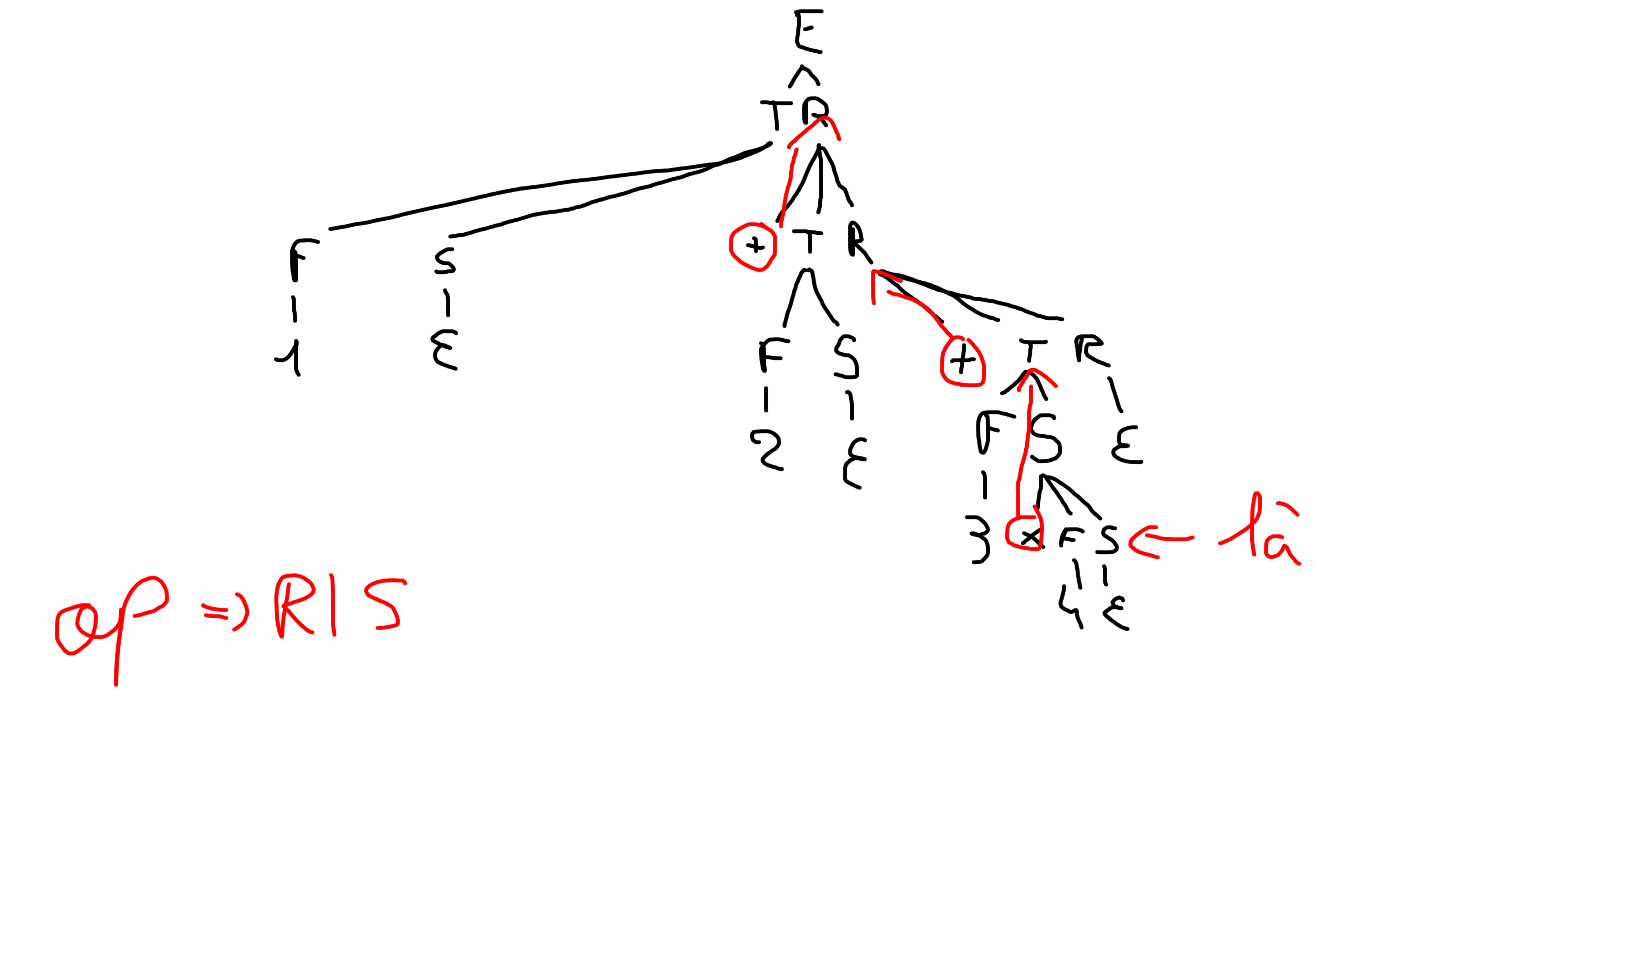 E
T R
F S + T R
1 ε F S + T R
2 ε F S ε
3 × F S ← là
4 ε
op ⇒ R | S